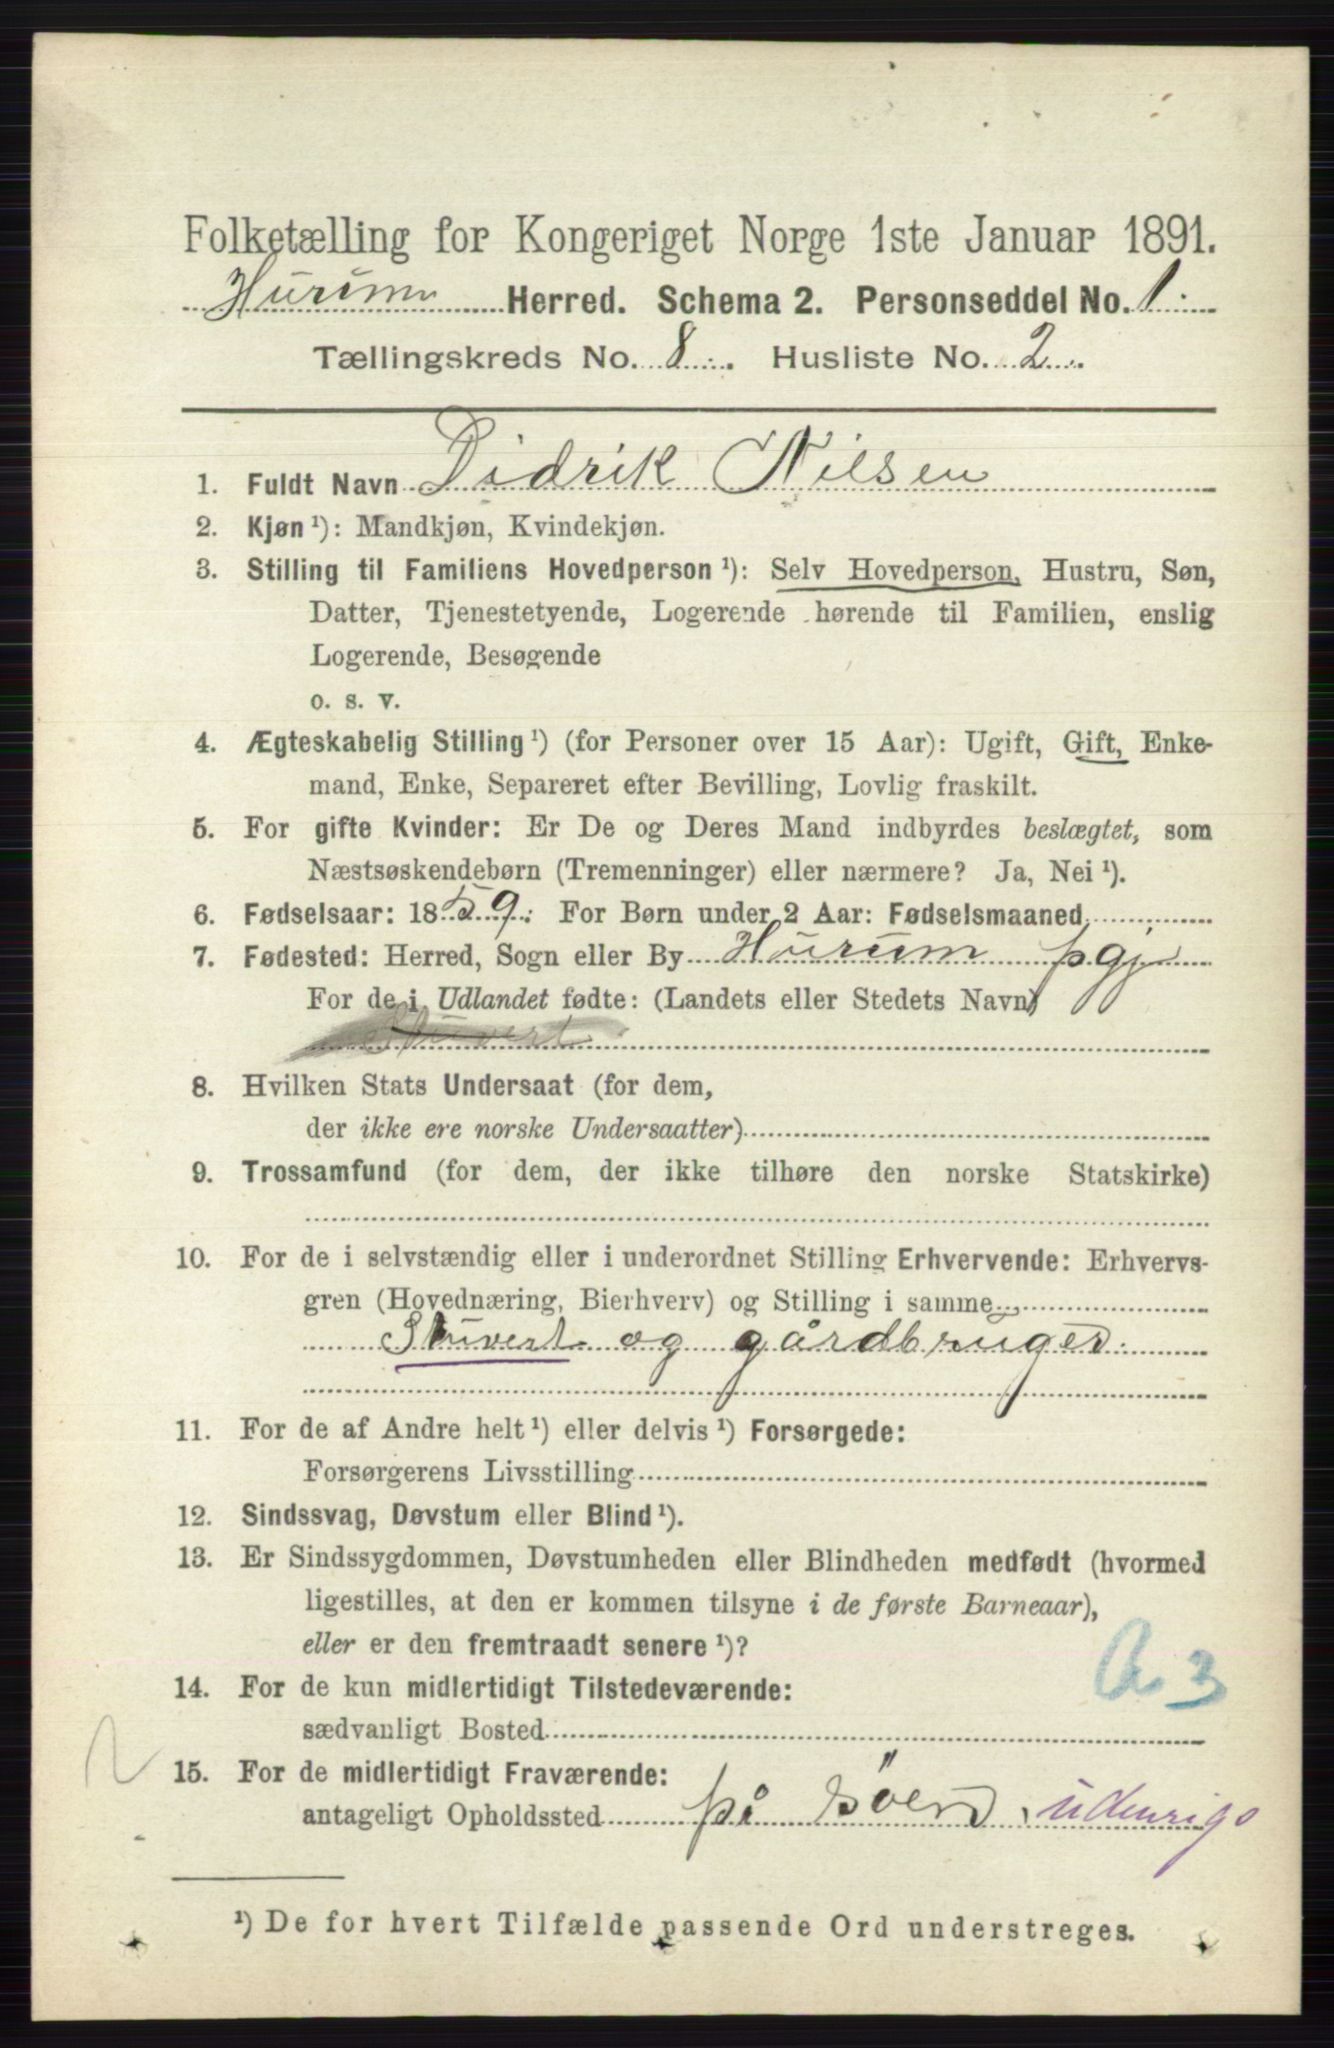 Folketælling for Kongeriget Norge 1ste Januar 1891.
Hurum Herred. Schema 2. Personseddel No. 1.
Tællingskreds No. 8. Husliste No. 2.
1. Fuldt Navn Didrik Nilsen
2. Kjøn ¹): Mandkjøn, Kvindekjøn.
3. Stilling til Familiens Hovedperson ¹): Selv Hovedperson, Hustru, Søn,
Datter, Tjenestetyende, Logerende hørende til Familien, enslig
Logerende, Besøgende
o. s. v.
4. Ægteskabelig Stilling ¹) (for Personer over 15 Aar): Ugift, Gift, Enke-
mand, Enke, Separeret efter Bevilling, Lovlig fraskilt.
5. For gifte Kvinder: Er De og Deres Mand indbyrdes beslægtet, som
Næstsøskendebørn (Tremenninger) eller nærmere? Ja, Nei ¹).
6. Fødselsaar: 1859. For Børn under 2 Aar: Fødselsmaaned
7. Fødested: Herred, Sogn eller By Hurum pgj
For de i Udlandet fødte: (Landets eller Stedets Navn)
Stuvert
8. Hvilken Stats Undersaat (for dem,
der ikke ere norske Undersaatter)
9. Trossamfund (for dem, der ikke tilhøre den norske Statskirke)
10. For de i selvstændig eller i underordnet Stilling Erhvervende: Erhvervs-
gren (Hovednæring, Bierhverv) og Stilling i samme
Stuvert og gårdbruger.
11. For de af Andre helt ¹) eller delvis ¹) Forsørgede:
Forsørgerens Livsstilling
12. Sindssvag, Døvstum eller Blind ¹).
13. Er Sindssygdommen, Døvstumheden eller Blindheden medfødt (hvormed
ligestilles, at den er kommen tilsyne i de første Barneaar),
eller er den fremtraadt senere ¹)?
A 3
14. For de kun midlertidigt Tilstedeværende:
sædvanligt Bosted
15. For de midlertidigt Fraværende:
antageligt Opholdssted på söen, udenrigs
¹) De for hvert Tilfælde passende Ord understreges.